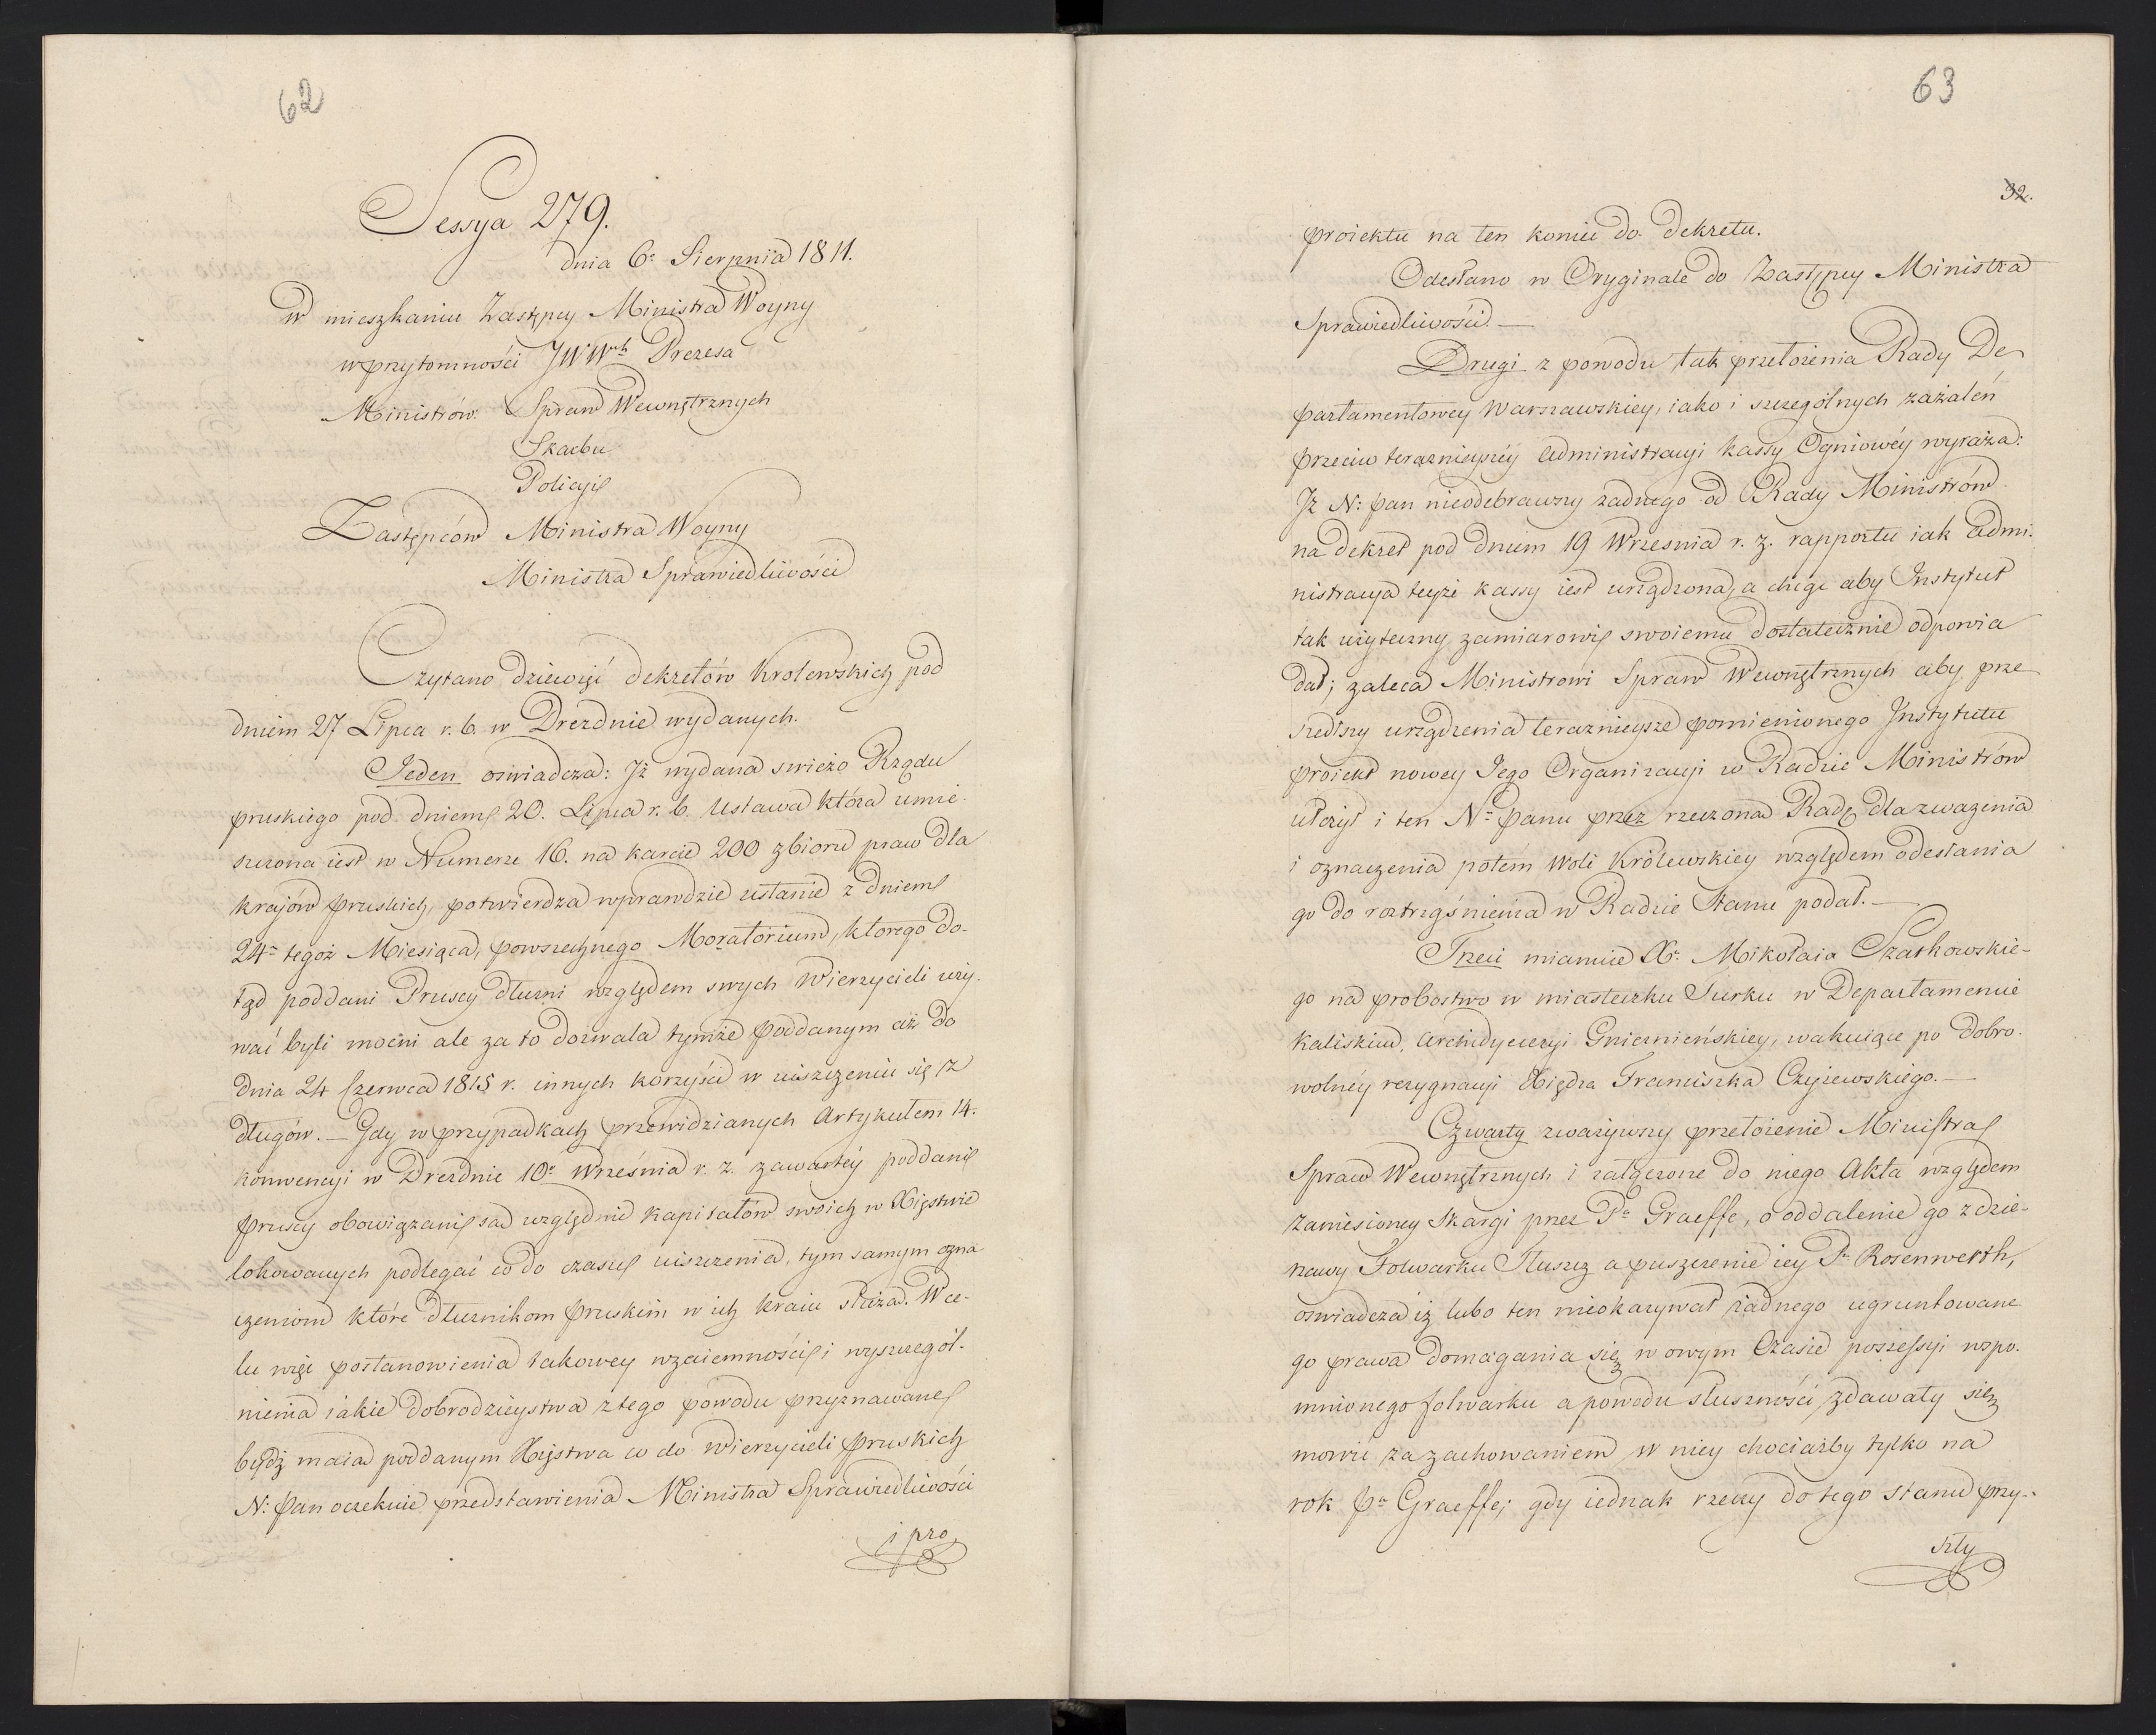 62
Sessya 279.
dnia 6º Sierpnia 1811.
w mieszkaniu Zastępcy Ministra Woyny
w przytomności JWWch Prezesa
Ministrów Spraw Wewnętrznych
Skarbu
Policyi
Zastępców Ministra Woyny
Ministra Sprawiedliwości
Czytano dziewięć dekretów Krolewskich pod
dniem 27 Lipca r. b. w Dreznie wydanych.
Jeden oświadcza: Jż wydana swieżo Rządu
pruskiego pod dniem 20. Lipca r. b. Ustawa która umie-
szczona iest w Numerze 16. na karcie 200 zbioru praw dla
krajów pruskich, potwierdza wprawdzie ustanie z dniem
24º tegoż Miesiąca, powszechnego Moratorium, ktorego do-
tąd poddani Pruscy dłużni względem swych Wierzycieli uży-
wać byli mocni ale za to dozwala tymże poddanym aż do
dnia 24 Czerwca 1815 r. innych korzyści w uiszczeniu się z
długów. — Gdy w przypadkach przewidzianych Artykułem 14.
konwencyi w Dreznie 10º Września r. z. zawartéy poddani
pruscy obowiązani są względnie kapitałów swoich w Xięstwie
lokowanych podlegać co do czasu uiszczenia, tym samym ozna
czeniom które dłużnikom pruskim w ich kraiu służą. W ce-
lu więc postanowienia takowey wzaiemności i wyszczegól-
nienia iakie dobrodzieystwa z tego powodu przyznawane
bydź maią poddanym Xięstwa co do Wierzycieli pruskich
N: Pan oczekuie przedstawienia Ministra Sprawiedliwości
i pro
63
32.
proiektu na ten koniec do dekretu.
Odesłano w Oryginale do Zastępcy Ministra
Sprawiedliwości. —
Drugi z powodu tak przełożenia Rady De-
partamentowey Warszawskiey, iako i szczególnych zażaleń
przeciw teraznieyszéy Administracyi kassy Ogniowéy wyraża:
Jż N: Pan nieodebrawszy żadnego od Rady Ministrów
na dekret pod dniem 19 Wrzesnia r. z. rapportu iak Admi-
nistracya teyże kassy iest urządzona, a chcąc aby Instytut
tak użyteczny zamiarowi swoiemu dostatecznie odpowia
dał; zaleca Ministrowi Spraw Wewnętrznych aby prze
szedłszy urządzenia teraznieysze pomienionego Jnstytutu
proiekt nowey Jego Organizacyi w Radzie Ministrów
ułożył i ten Nº Panu przez rzeczoną Radę dla zważenia
i oznaczenia potém Woli Królewskiey względem odesłania
go do roztrząśnienia w Radzie Stanu podał. —
Trzeci mianuie Xº Mikołaia Szatkowskie-
go na probostwo w miasteczku Turku w Departamencie
Kaliskim, Archidyecezyi Gnieznieńskiey, wakuiące po dobro-
wolnéy rezygnacyi Xiędza Franciszka Czyżewskiego. —
Czwarty zważywszy przełożenie Ministra
Spraw Wewnętrznych i załączone do niego Akta względem
zaniesioney Skargi przez Pª Graeffe, o oddalenie go z dzie-
rzawy Folwarku Tłuszcz a puszczenie iey Pª Rosenwerth,
oswiadcza iż lubo ten nieokazywał żadnego ugruntowane
go prawa domagania się w owym Czasie possessyi wspo-
mnionego folwarku a powodu słuszności zdawały się
mowić za zachowaniem w niey chociażby tylko na
rok Pª Graeffe; gdy iednak rzeczy do tego stanu przy-
szły